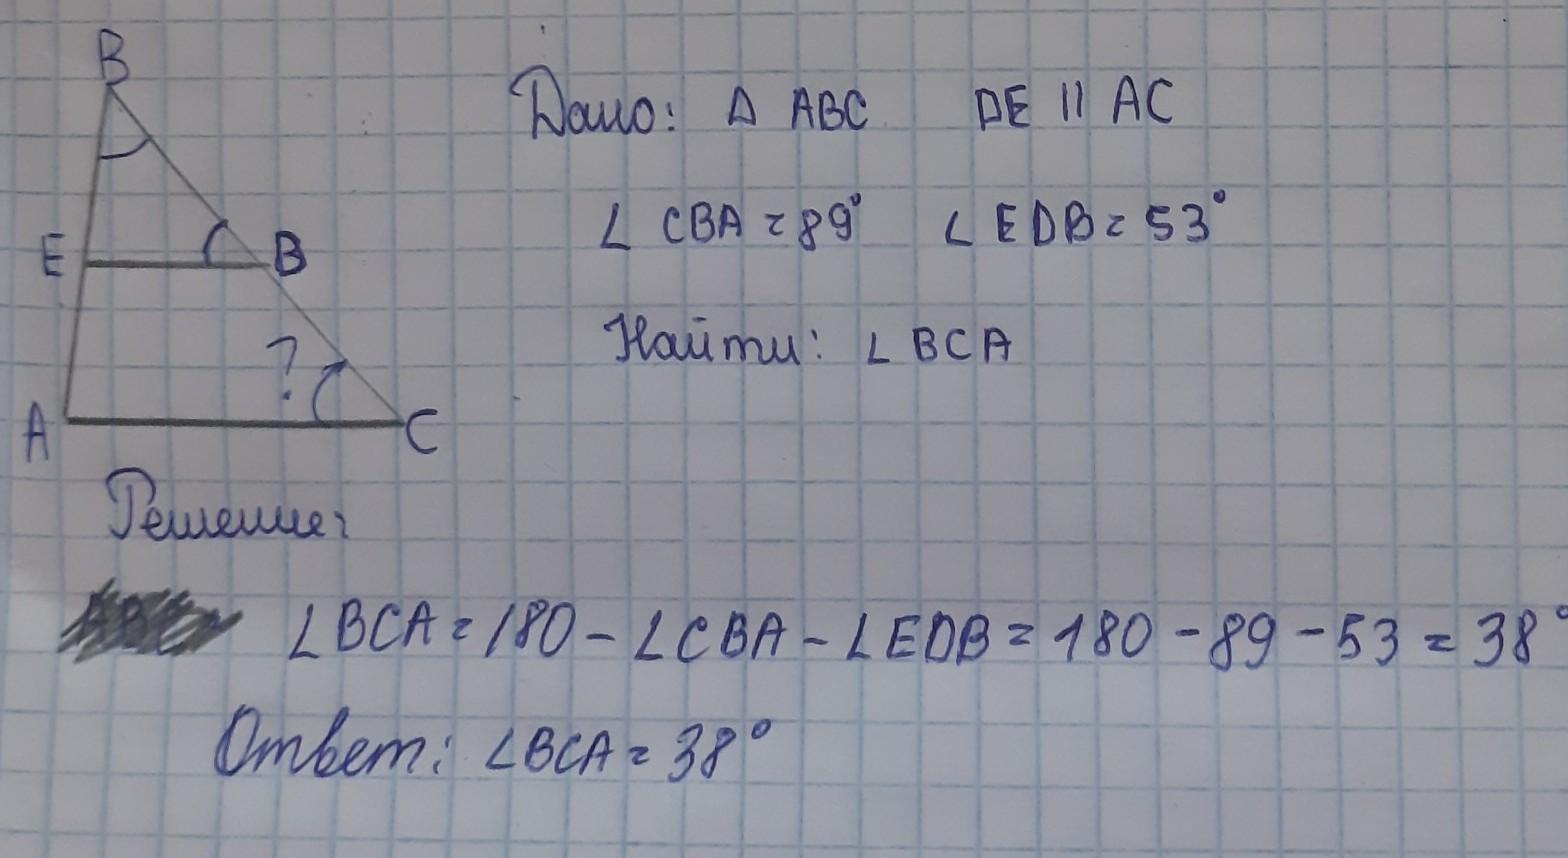 B
E B
? 
A C
Дано: Δ ABC DE || AC
∠ CBA = 89° ∠ EDB = 53°
Найти: ∠ BCA
Решение:
∠BCA = 180 - ∠CBA - ∠EDB = 180 - 89 - 53 = 38°
Ответ: ∠BCA = 38°